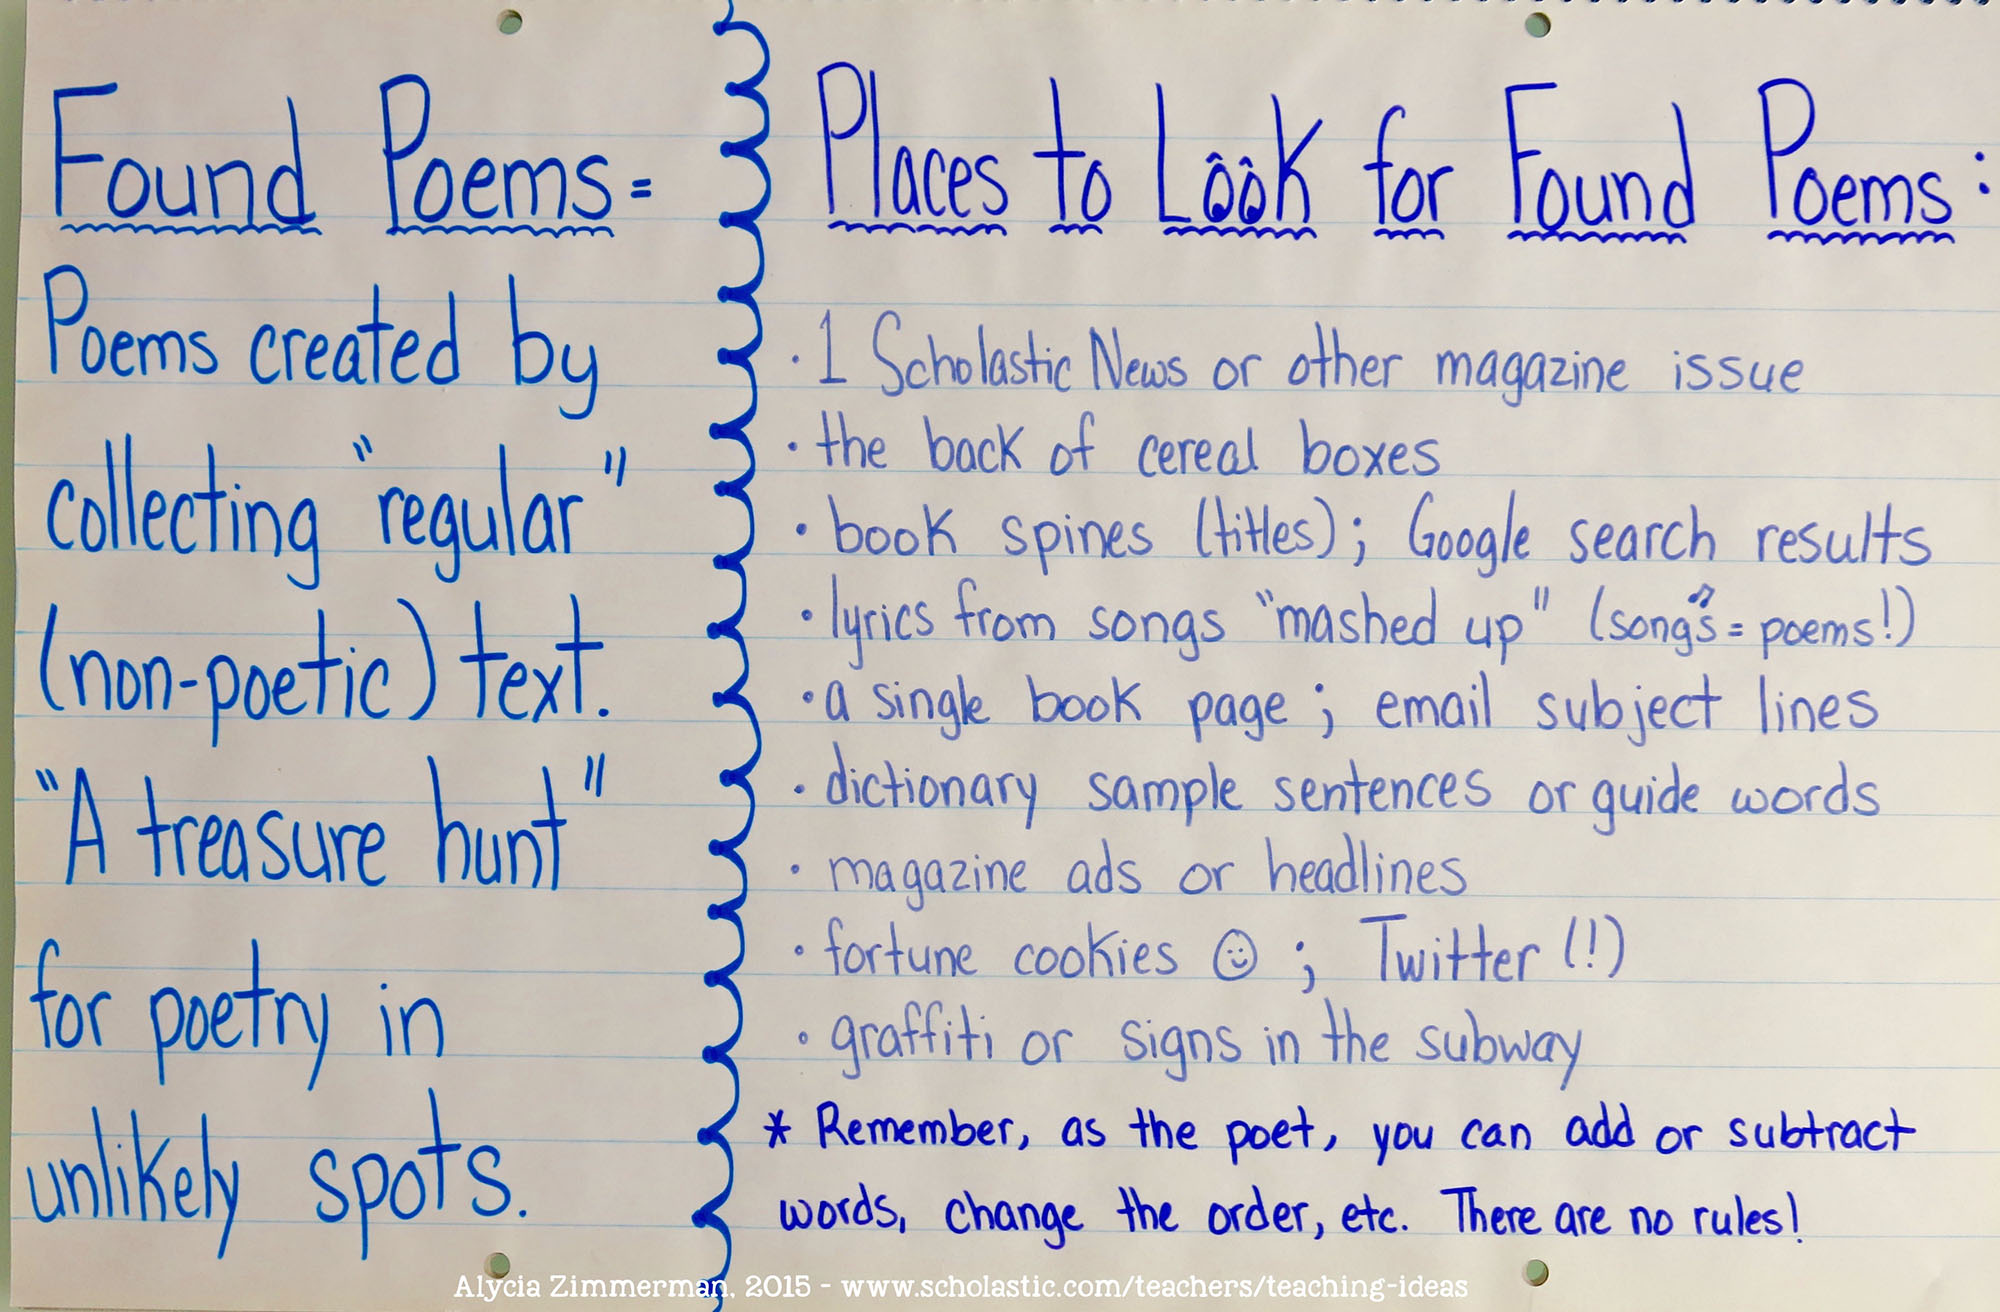 Found Poems=
Poems created by
collecting "regular"
(non-poetic) text.
"A treasure hunt"
for poetry in
unlikely spots.
Places to Look for Found Poems:
· 1 Scholastic News or other magazine issue
· the back of cereal boxes
· book spines (titles); Google search results
· lyrics from songs "mashed up" (songs = poems!)
· a single book page; email subject lines
· dictionary sample sentences or guide words
· magazine ads or headlines
· fortune cookies ☺; Twitter (!)
· graffiti or signs in the subway
* Remember, as the poet, you can add or subtract
words, change the order, etc. There are no rules!
Alycia Zimmerman, 2015 - www.scholastic.com/teachers/teaching-ideas